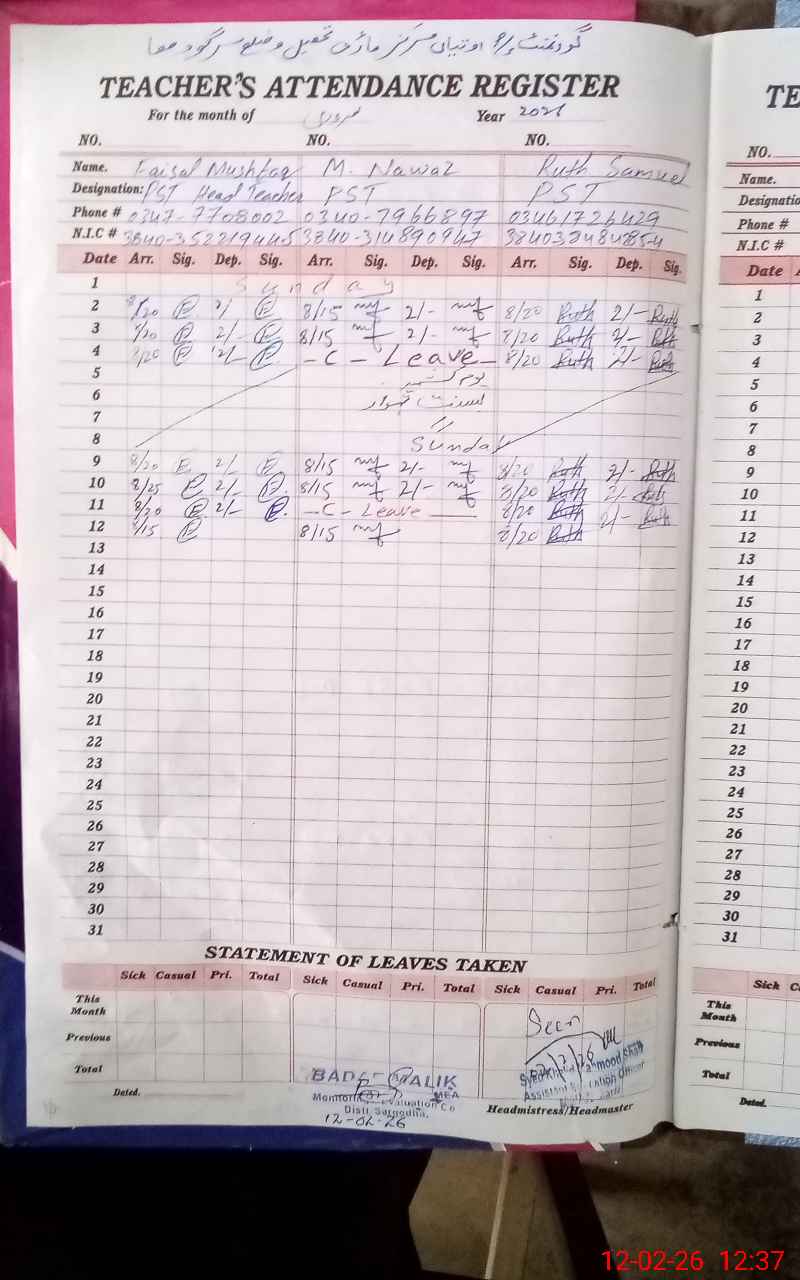 گورنمنٹ مرکز ماڑی تحصیل و ضلع سرگودھا
TEACHER'S ATTENDANCE REGISTER
For the month of فروری Year
NO. NO. NO.
Name. Faisal Mushtaq M. Nawaz Ruth Samuel
Designation: PST Head Teacher PST PST
Phone # 0347-7708002 0340-7966897 03461726429
N.I.C #
Date Arr. Sig. Dep. Sig. Arr. Sig. Dep. Sig. Arr. Sig. Dep. Sig.
1 Sunday
2 8/20 2/- 8/15 2/- 8/20 Ruth 2/- Ruth
3 8/20 2/- 8/15 2/- 8/20 Ruth 2/- Ruth
4 8/20 2/- -C- Leave- 8/20 Ruth 2/- Ruth
5 یوم کشمیر
6 بسنت تہوار
7
8 Sunday
9 8/20 2/- 8/15 2/- 8/20 Ruth 2/- Ruth
10 8/25 2/- 8/15 2/- 8/20 Ruth 2/- Ruth
11 8/20 2/- -C- Leave 8/20 Ruth 2/- Ruth
12 8/15 8/15 8/20 Ruth
13
14
15
16
17
18
19
20
21
22
23
24
25
26
27
28
29
30
31
STATEMENT OF LEAVES TAKEN
Sick Casual Pri. Total Sick Casual Pri. Total Sick Casual Pri. Total
This Month
Seen
Previous
Total
Dated.
MALIK
MEA
Distt. Sargodha.
12-02-26
Headmistress/Headmaster
TE
NO.
Name.
Designatio
Phone #
N.I.C #
Date A
1
2
3
4
5
6
7
8
9
10
11
12
13
14
15
16
17
18
19
20
21
22
23
24
25
26
27
28
29
30
31
Sick C
This Month
Previous
Total
Dated.
12-02-26 12:37